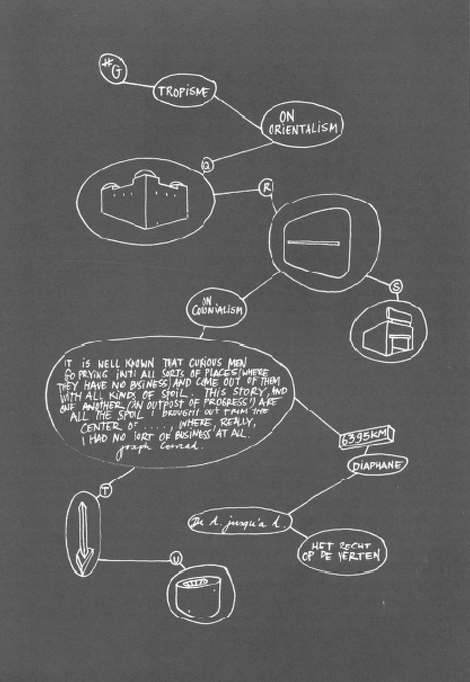 #G
TROPISME
ON
ORIENTALISM
Q
R
S
ON
COLONIALISM
IT IS WELL KNOWN THAT CURIOUS MEN
GO PRYING INTO ALL SORTS OF PLACES (WHERE
THEY HAVE NO BUSINESS) AND COME OUT OF THEM
WITH ALL KINDS OF SPOIL. THIS STORY, AND
ONE ANOTHER (AN OUTPOST OF PROGRESS) ARE
ALL THE SPOIL I BROUGHT OUT FROM THE
CENTER OF ....., WHERE, REALLY,
I HAD NO SORT OF BUSINESS AT ALL.
Joseph Conrad.
6395KM
DIAPHANE
T
De A. jusqu'a A.
HET RECHT
OP DE VERTEN
U